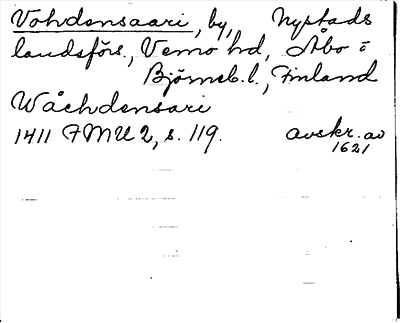 Vohdensaari, by, Nystads
landsförs., Vemo hd, Åbo o
Björneb. l., Finland
Wåchdensari
1411 FMU 2, s. 119. avskr. av
1621